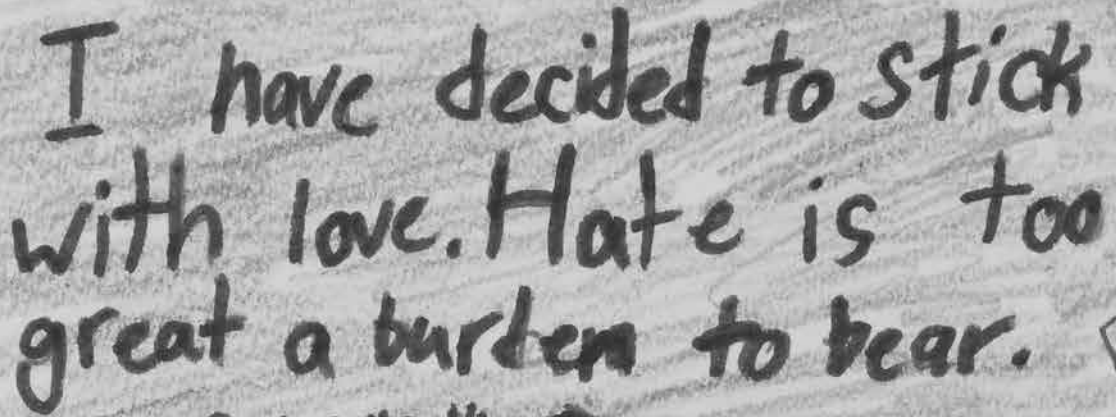 I have decided to stick
with love. Hate is too
great a burden to bear.